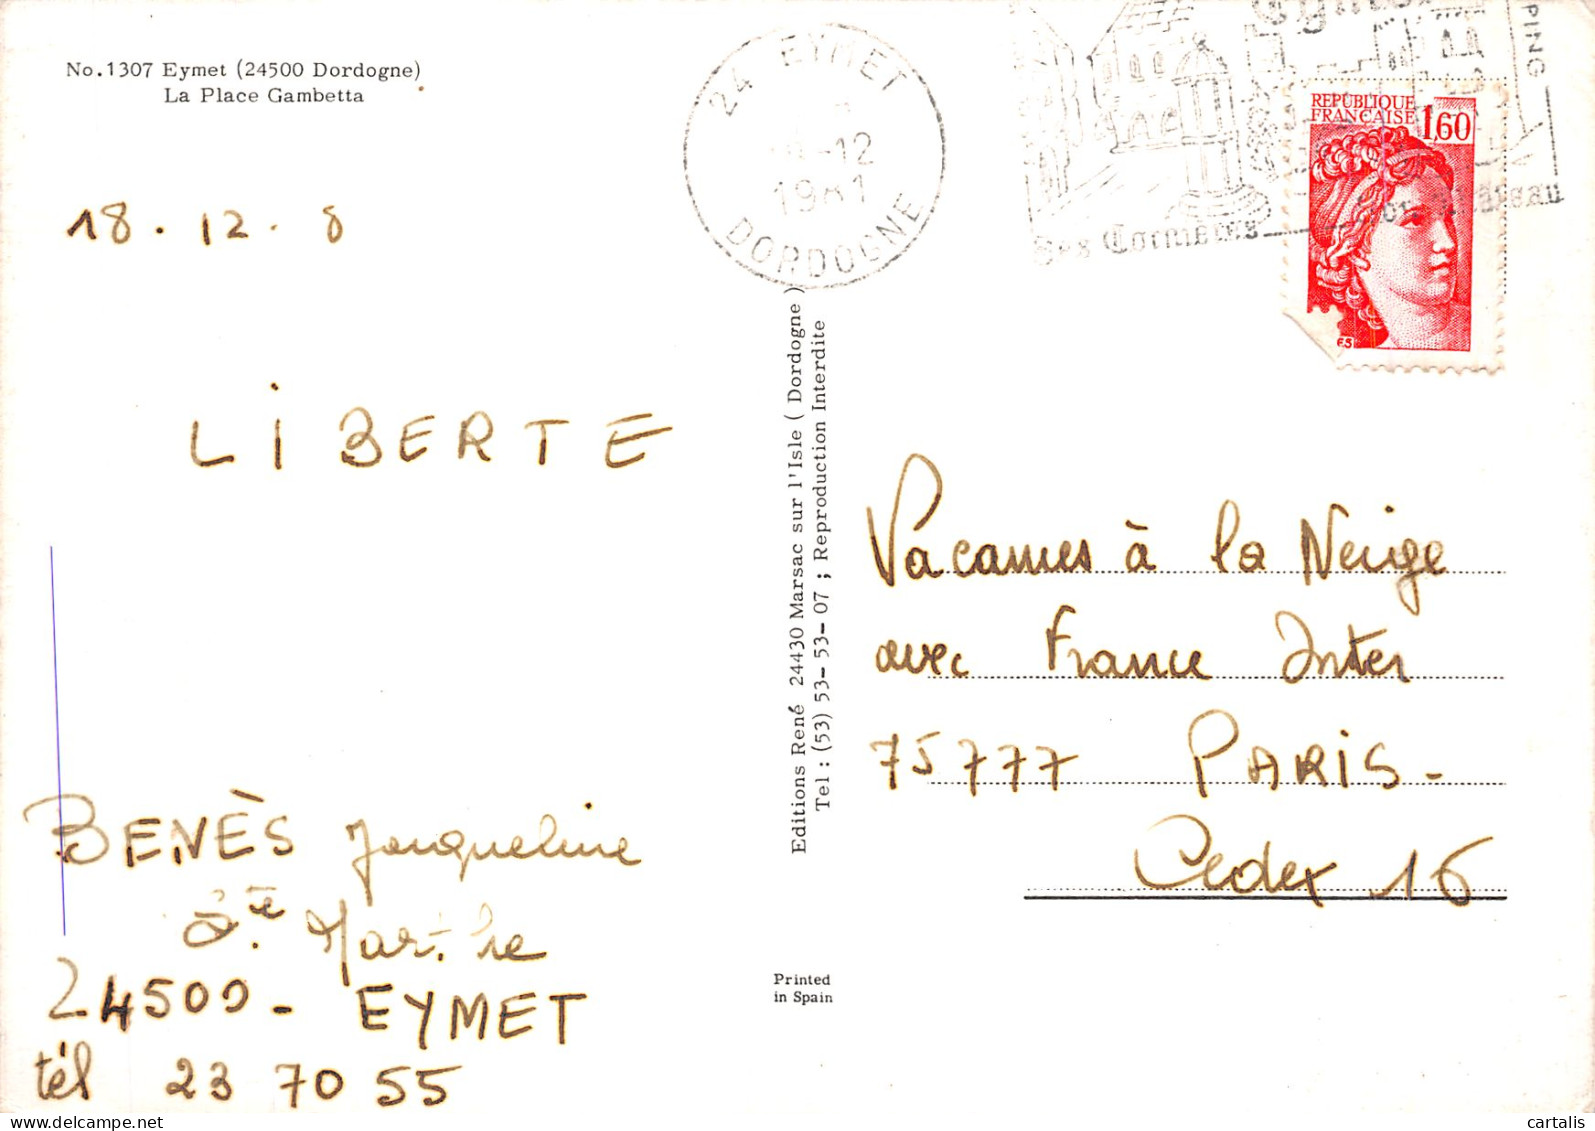 No.1307 Eymet (24500 Dordogne)
La Place Gambetta
24 EYMET
-12
1981
DORDOGNE
Ses Cornières
PING
REPUBLIQUE
FRANÇAISE 1,60
18.12.8
LiBERTE
Editions René 24430 Marsac sur l'Isle ( Dordogne )
Tel : (53) 53-53-07 ; Reproduction Interdite
Vacances à la Neige
avec France Inter
75777 PARiS-
Cedex 16
BENÈS Jacqueline
Ste Marthe
24500- EYMET
tél 23 70 55
Printed
in Spain
cartalis